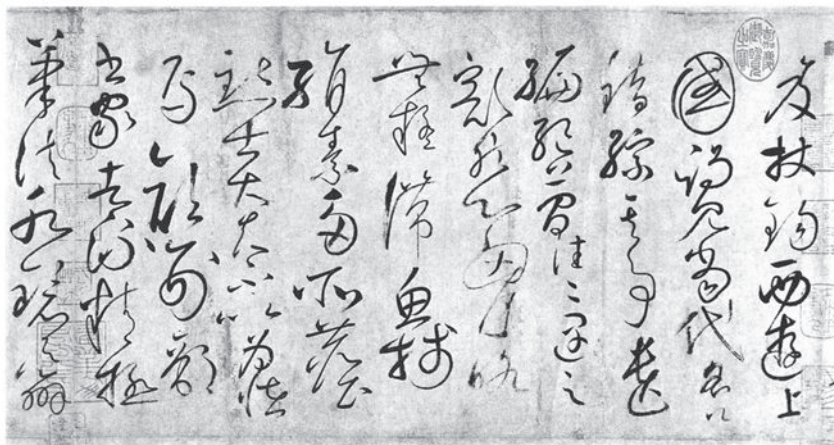 笈杖錫西遊上
國謁見當代名公
錯綜其事遺
編絕簡往〻遇之
豁然心胸略
無疑滯魚牋
絹素多所塵
點士大夫不以為怪
焉顏刑部
書家者流精極
筆法水鏡之辨
嘉慶御覽之寶